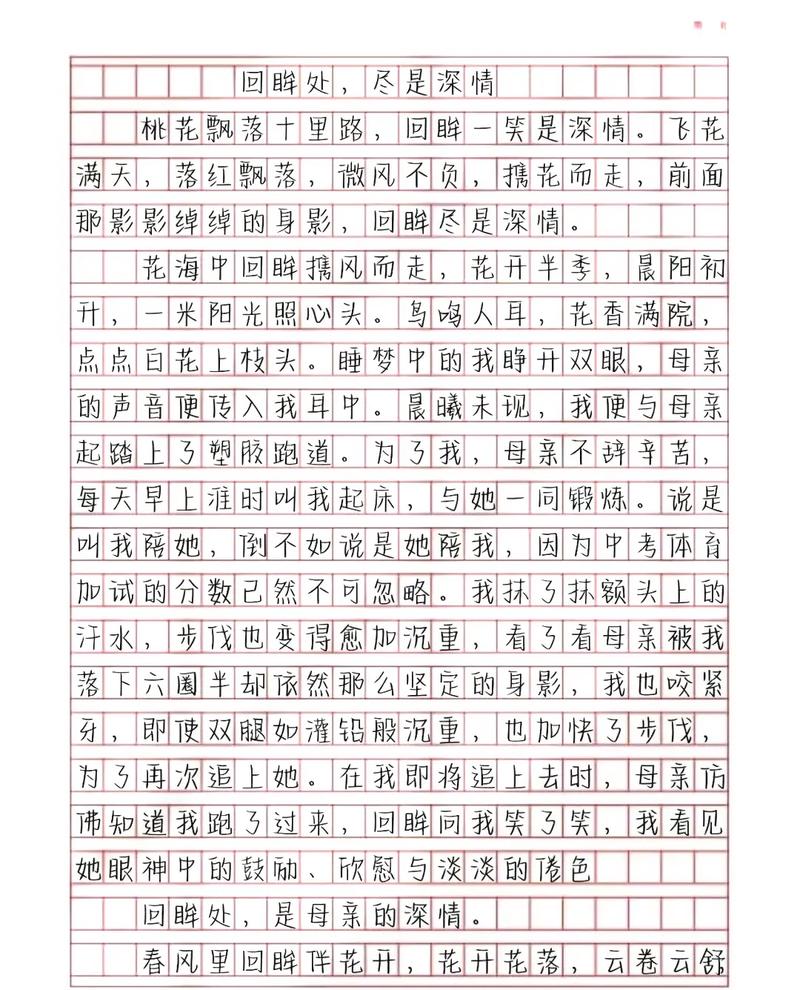 回眸处，尽是深情
桃花飘落十里路，回眸一笑是深情。飞花
满天，落红飘落，微风不负，携花而走，前面
那影影绰绰的身影，回眸尽是深情。
花海中回眸携风而走，花开半季，晨阳初
升，一米阳光照心头。鸟鸣人耳，花香满院，
点点白花上枝头。睡梦中的我睁开双眼，母亲
的声音便传入我耳中。晨曦未现，我便与母亲
起踏上了塑胶跑道。为了我，母亲不辞辛苦，
每天早上准时叫我起床，与她一同锻炼。说是
叫我陪她，倒不如说是她陪我，因为中考体育
加试的分数已然不可忽略。我抹了抹额头上的
汗水，步伐也变得愈加沉重，看了看母亲被我
落下六圈半却依然那么坚定的身影，我也咬紧
牙，即使双腿如灌铅般沉重，也加快了步伐，
为了再次追上她。在我即将追上去时，母亲仿
佛知道我跑了过来，回眸问我笑了笑，我看见
她眼神中的鼓励、欣慰与淡淡的倦色
回眸处，是母亲的深情。
春风里回眸伴花开，花开花落，云卷云舒